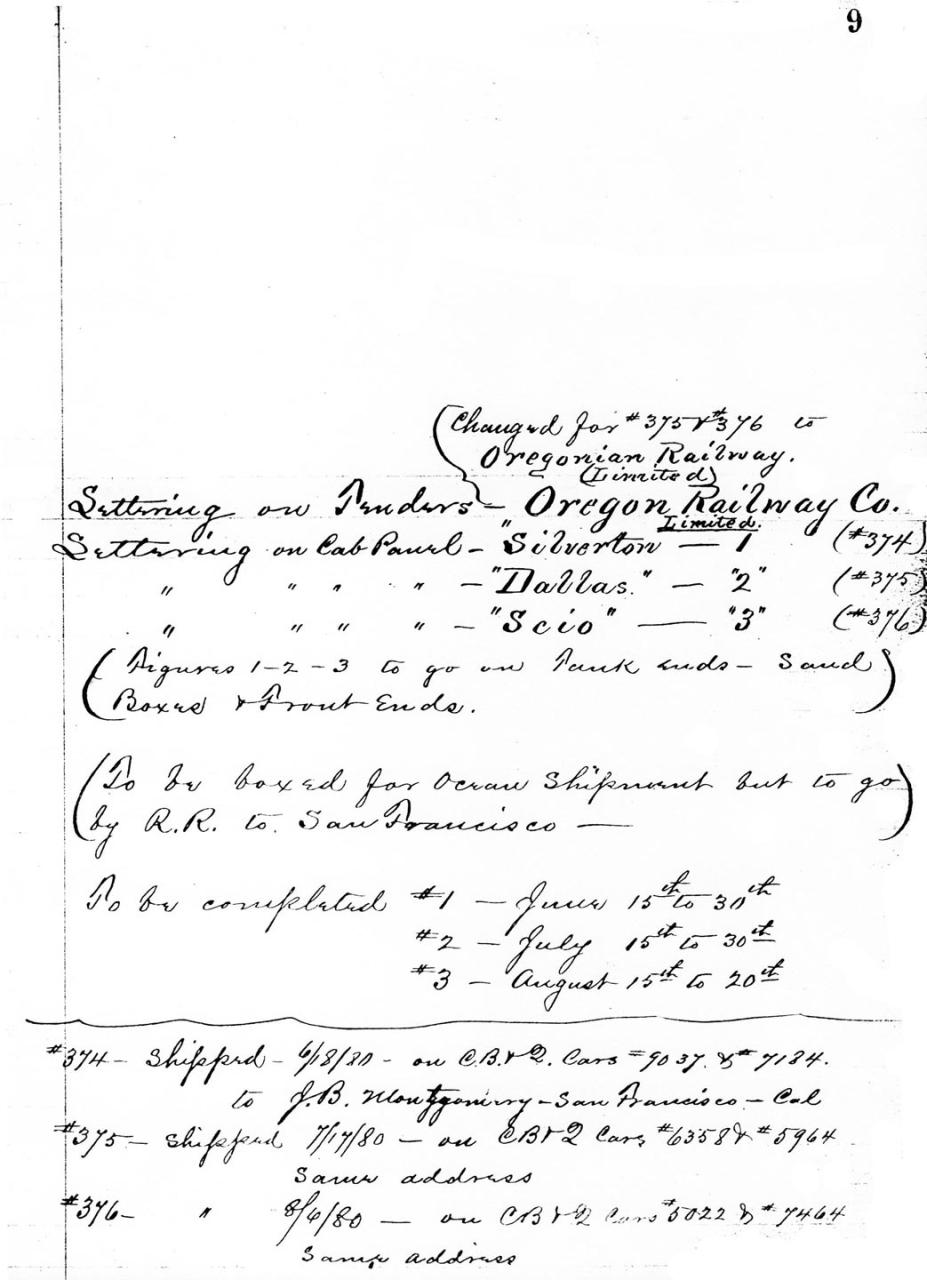 9
(Changed for #375 & #376 to
Oregonian Railway.
(Limited)
Lettering on Tenders - Oregon Railway Co.
Limited.
Lettering on Cab Panel - "Silverton - 1 (#374)
" " " " - "Dallas." - "2" (#375)
" " " " - "Scio" - "3" (#376)
(Figures 1-2-3 to go on Tank ends - Sand
Boxes & Front Ends.)
(To be boxed for Ocean Shipment but to go
by R.R. to San Francisco -)
To be completed #1 - June 15th to 30th
#2 - July 15th to 30th
#3 - August 15th to 20th
#374 - Shipped - 6/18/80 - on C.B.&Q. Cars #9037. & #7184.
to J.B. Montgomery - San Francisco - Cal
#375 - Shipped 7/17/80 - on CB&Q Cars #6358 & #5964
Same address
#376 - " 8/6/80 - on CB&Q Cars #5022 & #7464
Same address